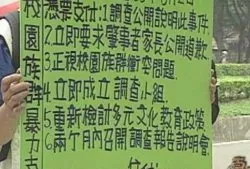 校園族群暴力
應支付:1.調查公開說明此事件.
2.立即要求肇事者家長公開道歉.
3.正視校園族群衝突問題.
4.立即成立調查小組.
5.重新檢討多元文化教育政策.
6.兩个月內召開調查報告說明會.